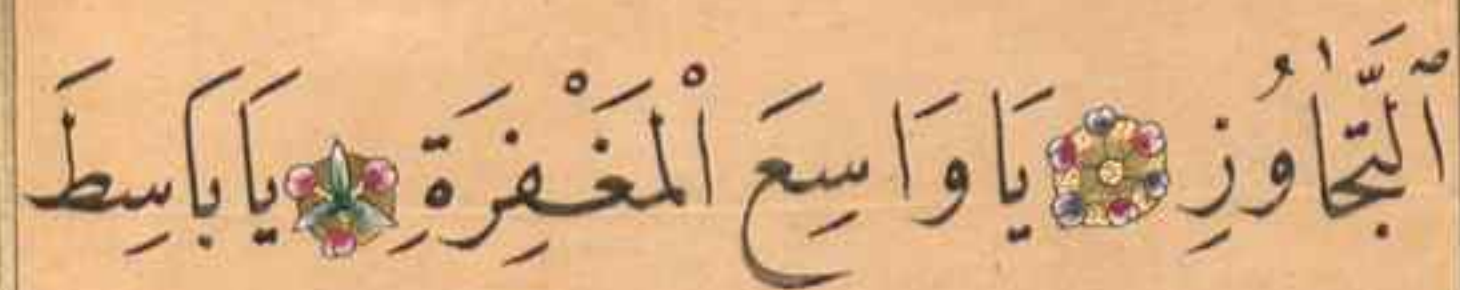 ٱلتَّجٰاوُزِ يَا وَاسِعَ ٱلْمَغْفِرَةِ يَا بَاسِطَ